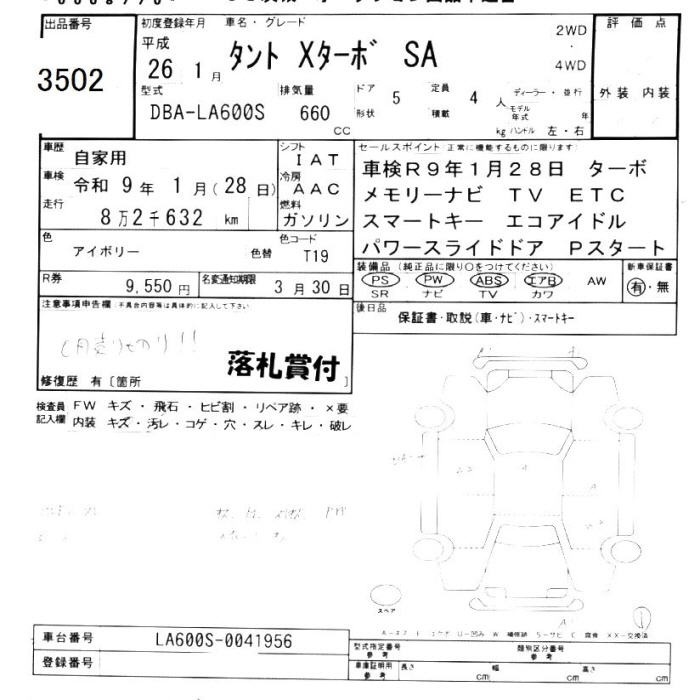 出品番号
3502
初度登録年月 車名・グレード
平成
26 1月
タント Xターボ SA
2WD
・
4WD
評価点
外装 内装
型式
DBA-LA600S
排気量
660
cc
ドア
形状
5
定員
積載
4
人
kg
ディーラー・並行
モデル
年式
年
ハンドル 左・右
車歴
自家用
車検
令和 9年 1月(28日)
走行
8万2千632 km
シフト
IAT
冷房
AAC
燃料
ガソリン
色
アイボリー
色替
色コード
T19
R券
9,550円
名変通知期限
3月30日
セールスポイント(正常に機能するものに限ります)
車検R9年1月28日 ターボ
メモリーナビ TV ETC
スマートキー エコアイドル
パワースライドドア Pスタート
装備品(純正品に限り○をつけてください)
PS PW ABS エアB AW
SR ナビ TV カワ
新車保証書
有・無
後日品
保証書・取説(車・ナビ)・スマートキー
注意事項申告欄(不具合内容等は具体的に記入して下さい)
落札賞付
修復歴 有〔箇所 〕
検査員 FW キズ・飛石・ヒビ割・リペア跡・×要
記入欄 内装 キズ・汚レ・コゲ・穴・スレ・キレ・破レ
スペア
車台番号
LA600S-0041956
登録番号
型式指定番号
参考
類別区分番号
参考
車庫証明用
参考
長さ cm
幅 cm
高さ cm